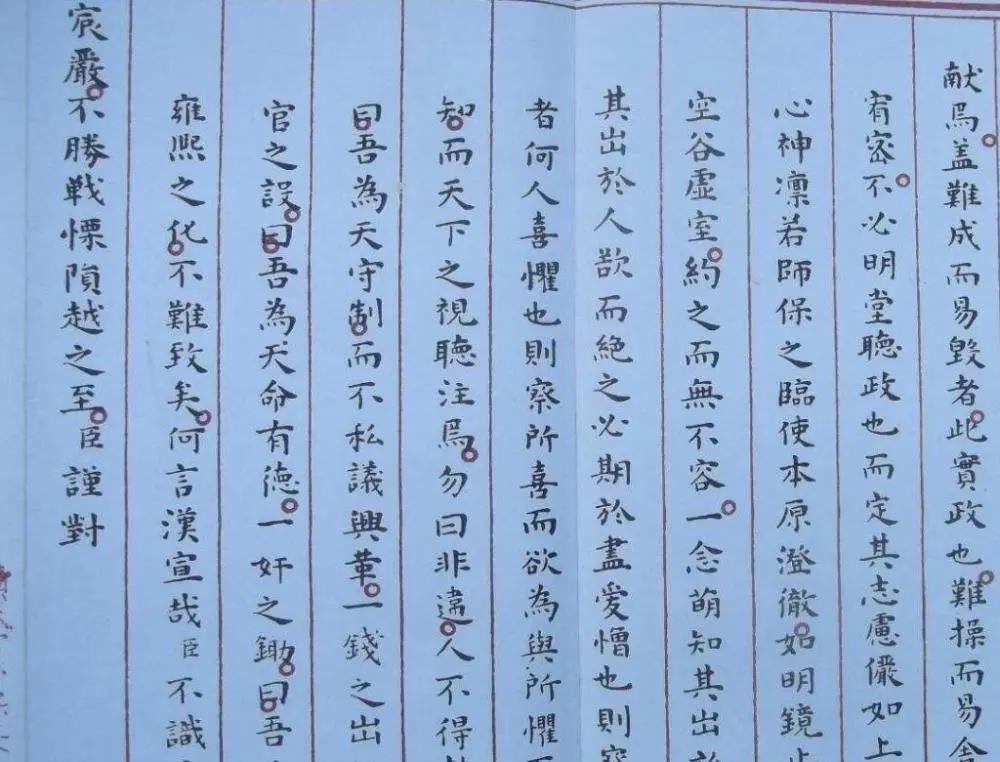 献焉盖難成而易毀者此實政也難操而易舍
宥密不必明堂聽政也而定其志慮儼如上
心神凛若師保之臨使本原澄徹如明鏡止
空谷虚室約之而無不容一念萌知其出於
其出於人欲而絶之必期於盡愛憎也則察
者何人喜懼也則察所喜而欲為與所懼而
知而天下之視聽注焉勿曰非違人不得
曰吾為天守制而不私議興革一錢之出
官之設曰吾為天命有德一奸之鋤曰吾
雍熙之化不難致矣何言漢宣哉臣不識
宸嚴不勝戰慄隕越之至臣謹對